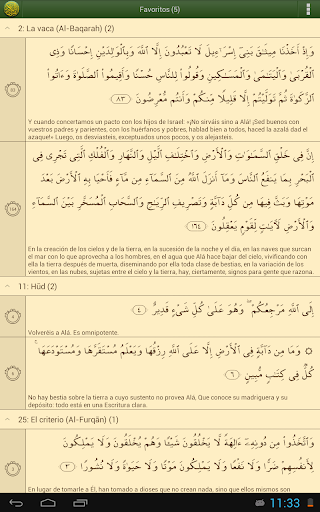 Favoritos (5)
2: La vaca (Al-Baqarah) (2)
وَإِذْ أَخَذْنَا مِيثَٰقَ بَنِىٓ إِسْرَٰٓءِيلَ لَا تَعْبُدُونَ إِلَّا ٱللَّهَ وَبِٱلْوَٰلِدَيْنِ إِحْسَانًا وَذِى
ٱلْقُرْبَىٰ وَٱلْيَتَٰمَىٰ وَٱلْمَسَٰكِينِ وَقُولُوا۟ لِلنَّاسِ حُسْنًا وَأَقِيمُوا۟ ٱلصَّلَوٰةَ وَءَاتُوا۟
ٱلزَّكَوٰةَ ثُمَّ تَوَلَّيْتُمْ إِلَّا قَلِيلًا مِّنكُمْ وَأَنتُم مُّعْرِضُونَ ٨٣
Y cuando concertamos un pacto con los hijos de Israel: «¡No sirváis sino a Alá! ¡Sed buenos con
vuestros padres y parientes, con los huérfanos y pobres, hablad bien a todos, haced la azalá dad el
azaque!» Luego, os desviasteis, exceptuados unos pocos, y os alejasteis.
إِنَّ فِى خَلْقِ ٱلسَّمَٰوَٰتِ وَٱلْأَرْضِ وَٱخْتِلَٰفِ ٱلَّيْلِ وَٱلنَّهَارِ وَٱلْفُلْكِ ٱلَّتِى تَجْرِى فِى
ٱلْبَحْرِ بِمَا يَنفَعُ ٱلنَّاسَ وَمَآ أَنزَلَ ٱللَّهُ مِنَ ٱلسَّمَآءِ مِن مَّآءٍ فَأَحْيَا بِهِ ٱلْأَرْضَ بَعْدَ
مَوْتِهَا وَبَثَّ فِيهَا مِن كُلِّ دَآبَّةٍ وَتَصْرِيفِ ٱلرِّيَٰحِ وَٱلسَّحَابِ ٱلْمُسَخَّرِ بَيْنَ ٱلسَّمَآءِ
وَٱلْأَرْضِ لَءَايَٰتٍ لِّقَوْمٍ يَعْقِلُونَ ١٦٤
En la creación de los cielos y de la tierra, en la sucesión de la noche y el día, en las naves que surcan
el mar con lo que aprovecha a los hombres, en el agua que Alá hace bajar del cielo, vivificando con
ella la tierra después de muerta, diseminando por ella toda clase de bestias, en la variación de los
vientos, en las nubes, sujetas entre el cielo y la tierra, hay, ciertamente, signos para gente que razona.
11: Húd (2)
إِلَى ٱللَّهِ مَرْجِعُكُمْ وَهُوَ عَلَىٰ كُلِّ شَىْءٍ قَدِيرٌ ٤
Volveréis a Alá. Es omnipotente.
وَمَا مِن دَآبَّةٍ فِى ٱلْأَرْضِ إِلَّا عَلَى ٱللَّهِ رِزْقُهَا وَيَعْلَمُ مُسْتَقَرَّهَا وَمُسْتَوْدَعَهَا
كُلٌّ فِى كِتَٰبٍ مُّبِينٍ ٦
No hay bestia sobre la tierra a cuyo sustento no provea Alá, Que conoce su madriguera y su
depósito: todo está en una Escritura clara.
25: El criterio (Al-Furqân) (1)
وَٱتَّخَذُوا۟ مِن دُونِهِۦٓ ءَالِهَةً لَّا يَخْلُقُونَ شَيْـًٔا وَهُمْ يُخْلَقُونَ وَلَا يَمْلِكُونَ
لِأَنفُسِهِمْ ضَرًّا وَلَا نَفْعًا وَلَا يَمْلِكُونَ مَوْتًا وَلَا حَيَوٰةً وَلَا نُشُورًا ٣
En lugar de tomarle a Él, han tomado a dioses que no crean nada, sino que ellos mismos son
11:33